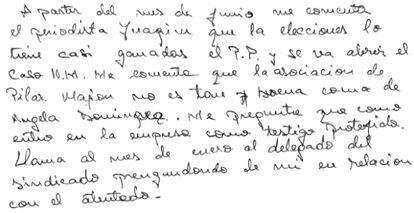 A partir del mes de junio me comenta
el periodista Juaquin que la elecciones lo
tiene casi ganados el P.P y se va abrir el
Caso 11.M. Me comenta que la asociacion de
Pilar Majon no es tan buena coma de
Angela Dominguez. Me pregunta que como
entro en la empresa como testigo protegido.
Llama al mes de enero al delegado del
sindicado de mi en relacion
con el atentado.